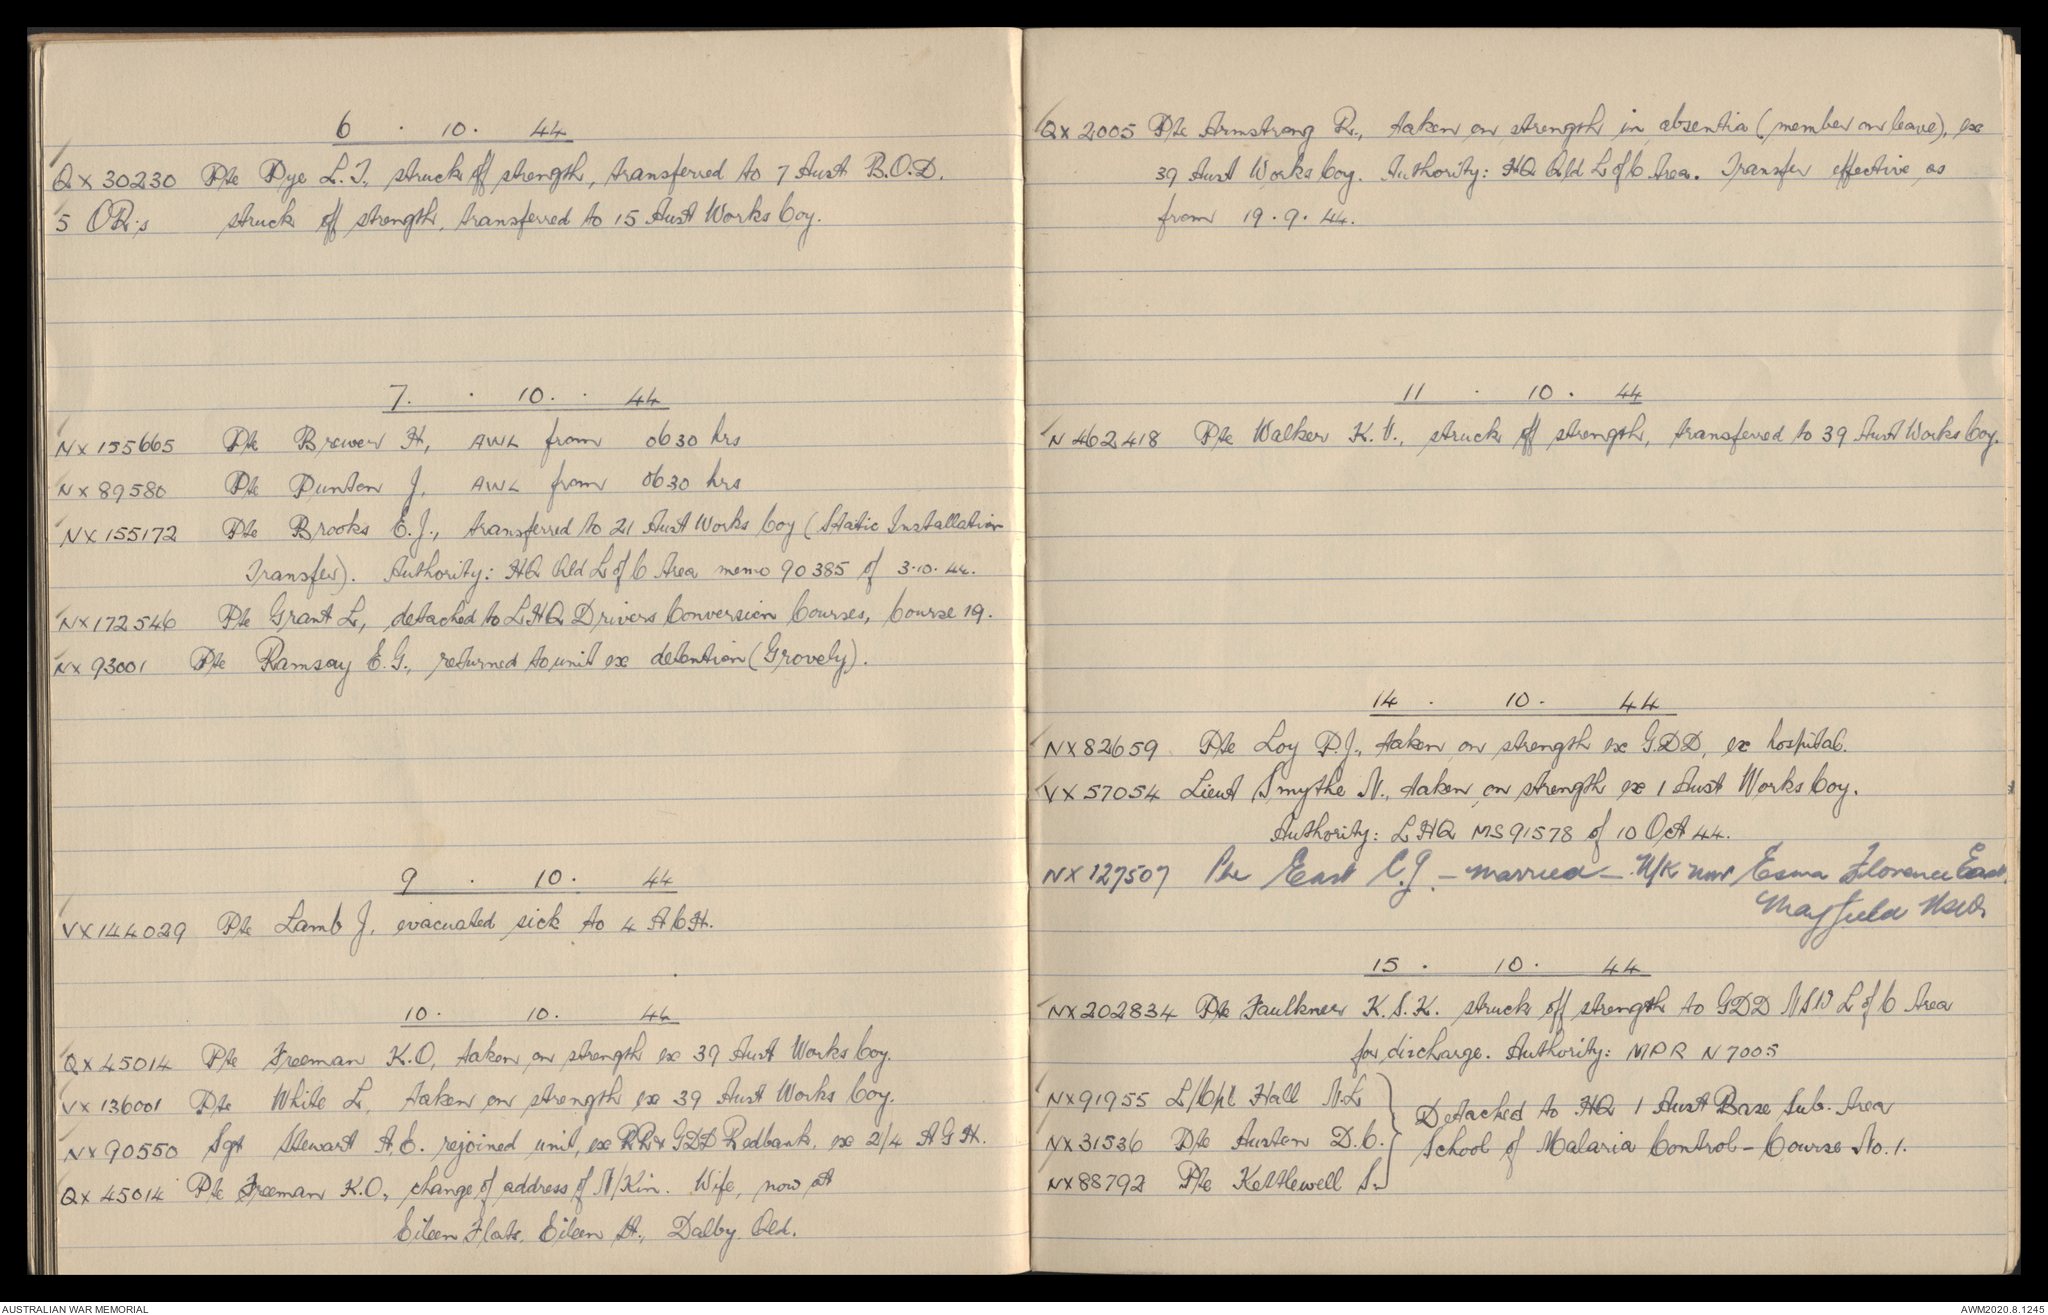 6 . 10 . 44
QX 30230 Pte Dye L. T., struck off strength, transferred to 7 Aust B.O.D.
5 OR's struck off strength, transferred to 15 Aust Works Coy.
7. . 10. . 44
NX 155665 Pte Brewer H, AWL from 0630 hrs
NX 89580 Pte Dunton J, AWL from 0630 hrs
NX 155172 Pte Brooks E.J., transferred to 21 Aust Works Coy (Static Installation
Transfer). Authority: HQ Qld L of C Area memo 90385 of 3.10.44.
NX 172546 Pte Grant L, detached to LHQ Drivers Conversion Courses, Course 19.
NX 93001 Pte Ramsay E.G., returned to unit ex detention (Grovely).
9 . 10. 44
VX144029 Pte Lamb J, evacuated sick to 4 ACH.
10. 10. 44
QX 45014 Pte Freeman K.O, taken on strength ex 39 Aust Works Coy.
VX 136001 Pte White L, taken on strength ex 39 Aust Works Coy.
NX 90550 Sgt Stewart A.E. rejoined unit, ex RR & GDD Redbank, ex 2/4 AGH.
QX 45014 Pte Freeman K.O, change of address of N/Kin. Wife, now at
Eileen Flats, Eileen St., Dalby Qld.
QX 2005 Pte Armstrong R., taken on strength in absentia (member on leave), ex
39 Aust Works Coy. Authority: HQ Qld L of C Area. Transfer effective as
from 19.9.44.
11 . 10 . 44
N 462418 Pte Walker K.V., struck off strength, transferred to 39 Aust Works Coy.
14 . 10. 44
NX82659 Pte Loy P.J., taken on strength ex G.D.D, ex hospital.
VX 57054 Lieut Smythe N., taken on strength ex 1 Aust Works Coy.
Authority: LHQ MS91578 of 10 Oct 44.
NX 127507 Pte East C.J. – married – N/K now Esma Florence East,
Mayfield NSW
15 . 10. 44
NX202834 Pte Faulkner K.S.K. struck off strength to GDD NSW L of C Area
for discharge. Authority: MPR N7005
NX91955 L/Cpl Hall N.L
Detached to HQ 1 Aust Base Sub. Area
NX31536 Pte Austen D.C.
School of Malaria Control – Course No. 1.
NX88792 Pte Kettlewell S.
AUSTRALIAN WAR MEMORIAL
AWM2020.8.1245